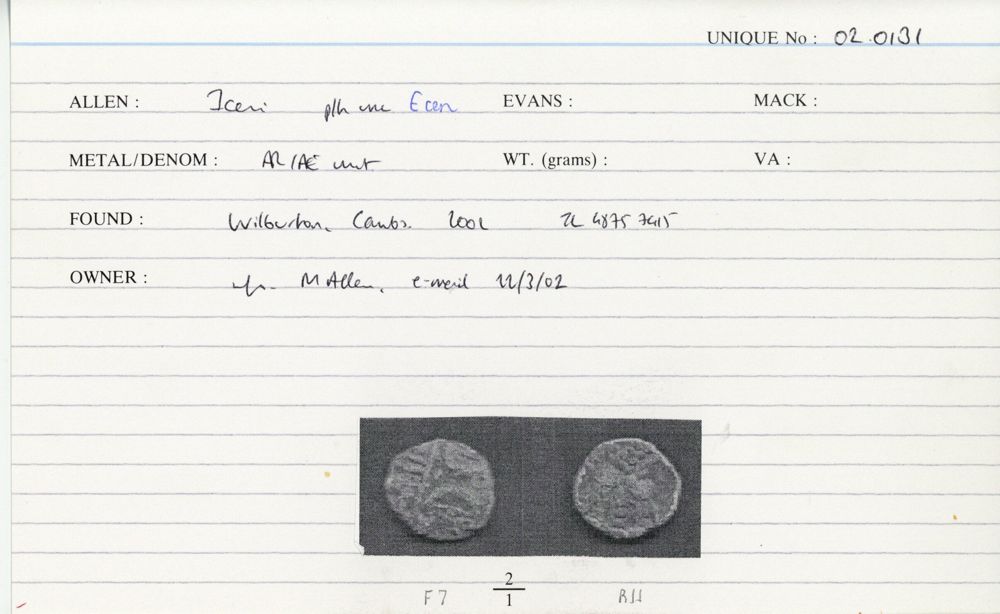 UNIQUE No : 02.0131
ALLEN : Iceni plh unc Ecen EVANS : MACK :
METAL/DENOM : AR/AE unit WT. (grams) : VA :
FOUND : Wilburton, Cambs. 2002 TL 4875 7415
OWNER : M Allen, e-mail 22/3/02
2
F7 R11
1